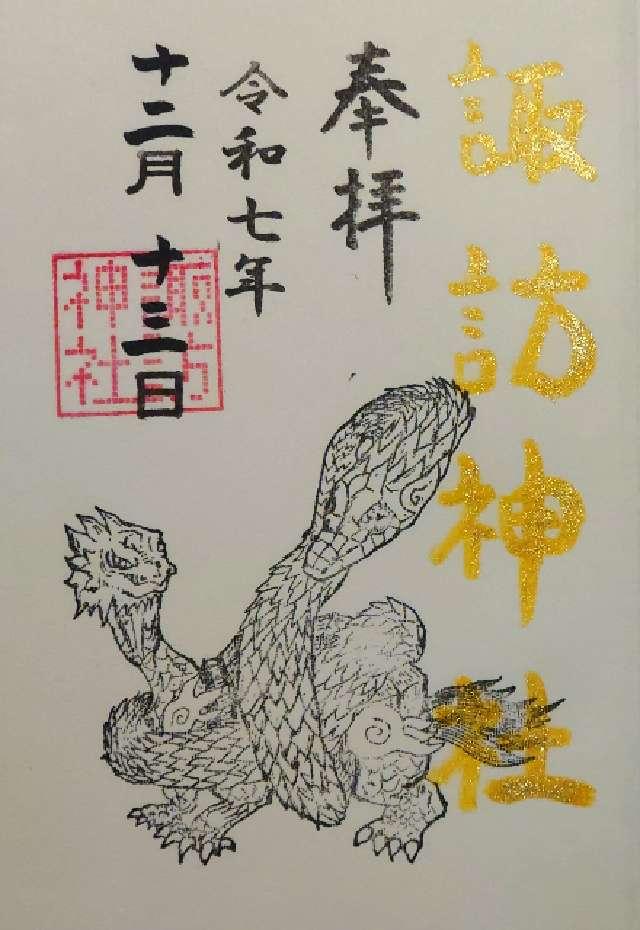 諏訪神社
奉拝
令和七年
十二月十三日
諏訪
神社